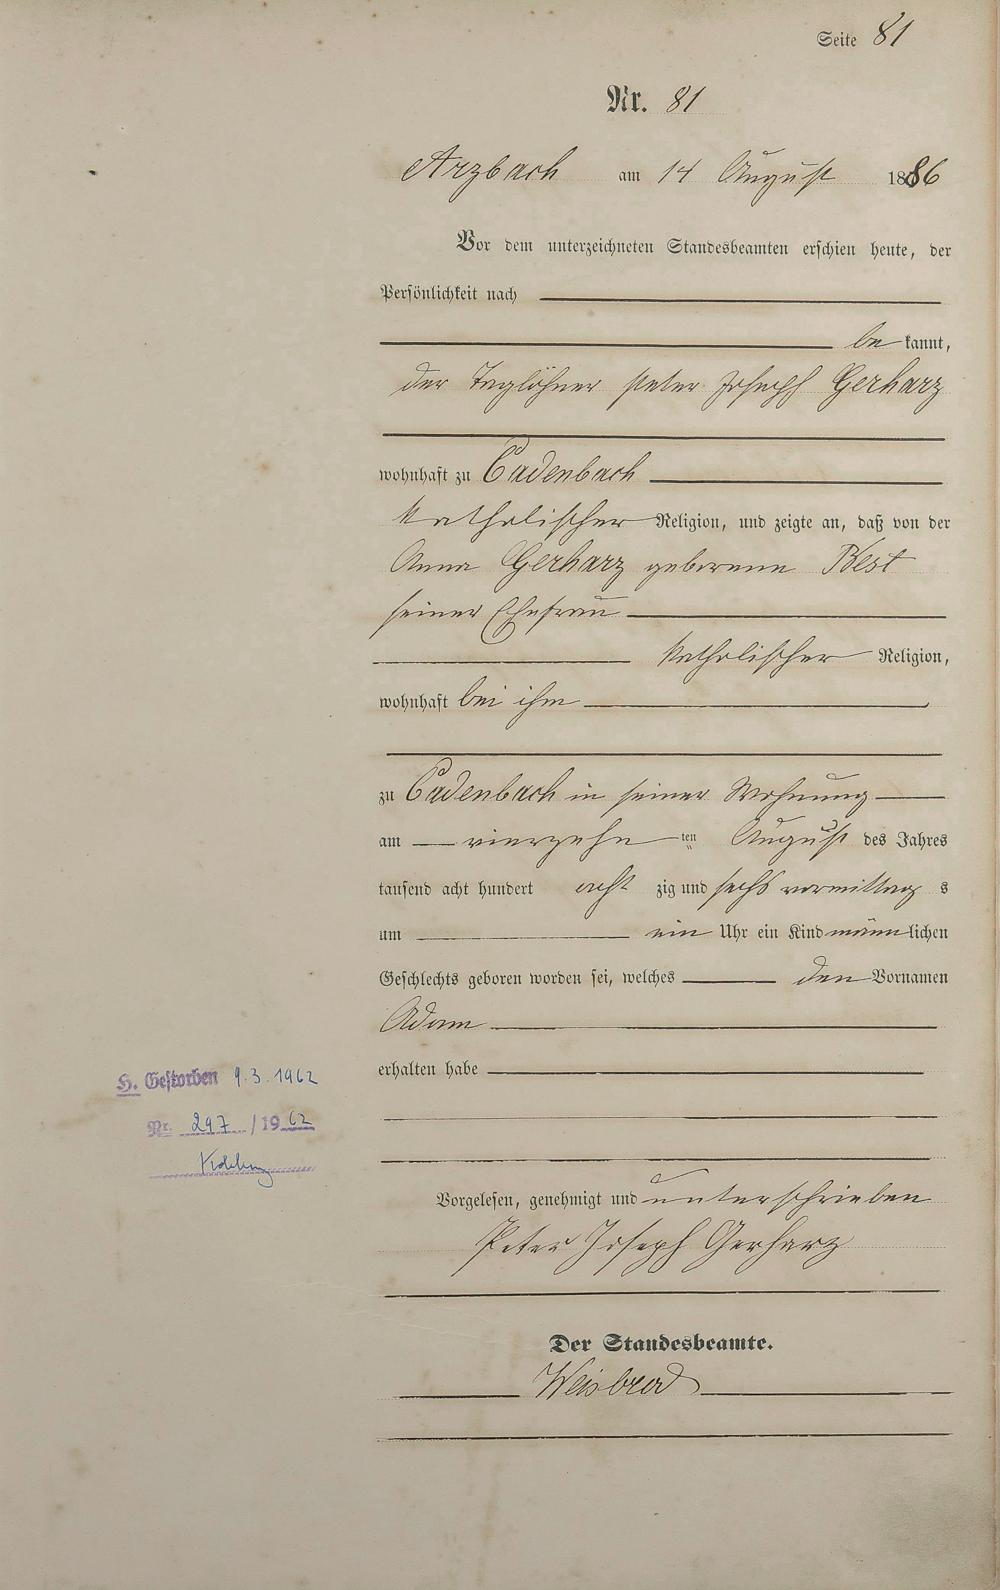 Seite 81
Nr. 81
Arzbach am 14 August 1886
Vor dem unterzeichneten Standesbeamten erschien heute, der
Persönlichkeit nach
be kannt,
der Taglöhner Peter Joseph Gerharz
wohnhaft zu Cadenbach
katholischer Religion, und zeigte an, daß von der
Anna Gerharz geborene Best
seiner Ehefrau
katholischer Religion,
wohnhaft bei ihm
zu Cadenbach in seiner Wohnung
am vierzehn ten August des Jahres
tausend acht hundert acht zig und sechs vormittag s
um ein Uhr ein Kind männ lichen
Geschlechts geboren worden sei, welches den Vornamen
Adam
erhalten habe
H. Gestorben 9.3.1962
Nr. 297 / 1962
Vorgelesen, genehmigt und unterschrieben
Peter Joseph Gerharz
Der Standesbeamte.
Weisbrod